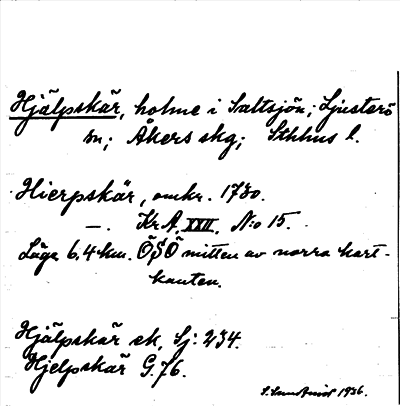 Hjälpskär, holme i Saltsjön; Ljusterö
sn; Åkers skg; Sthlms l.
Hierpskär, omkr. 1730.
—. Kr.A. XXII. N:o 15.
Läge 6,4 km. ÖSÖ mitten av norra kart-
kanten.
Hjälpskär ek. Sj: 234.
Hjelpskär G.76.
1936.